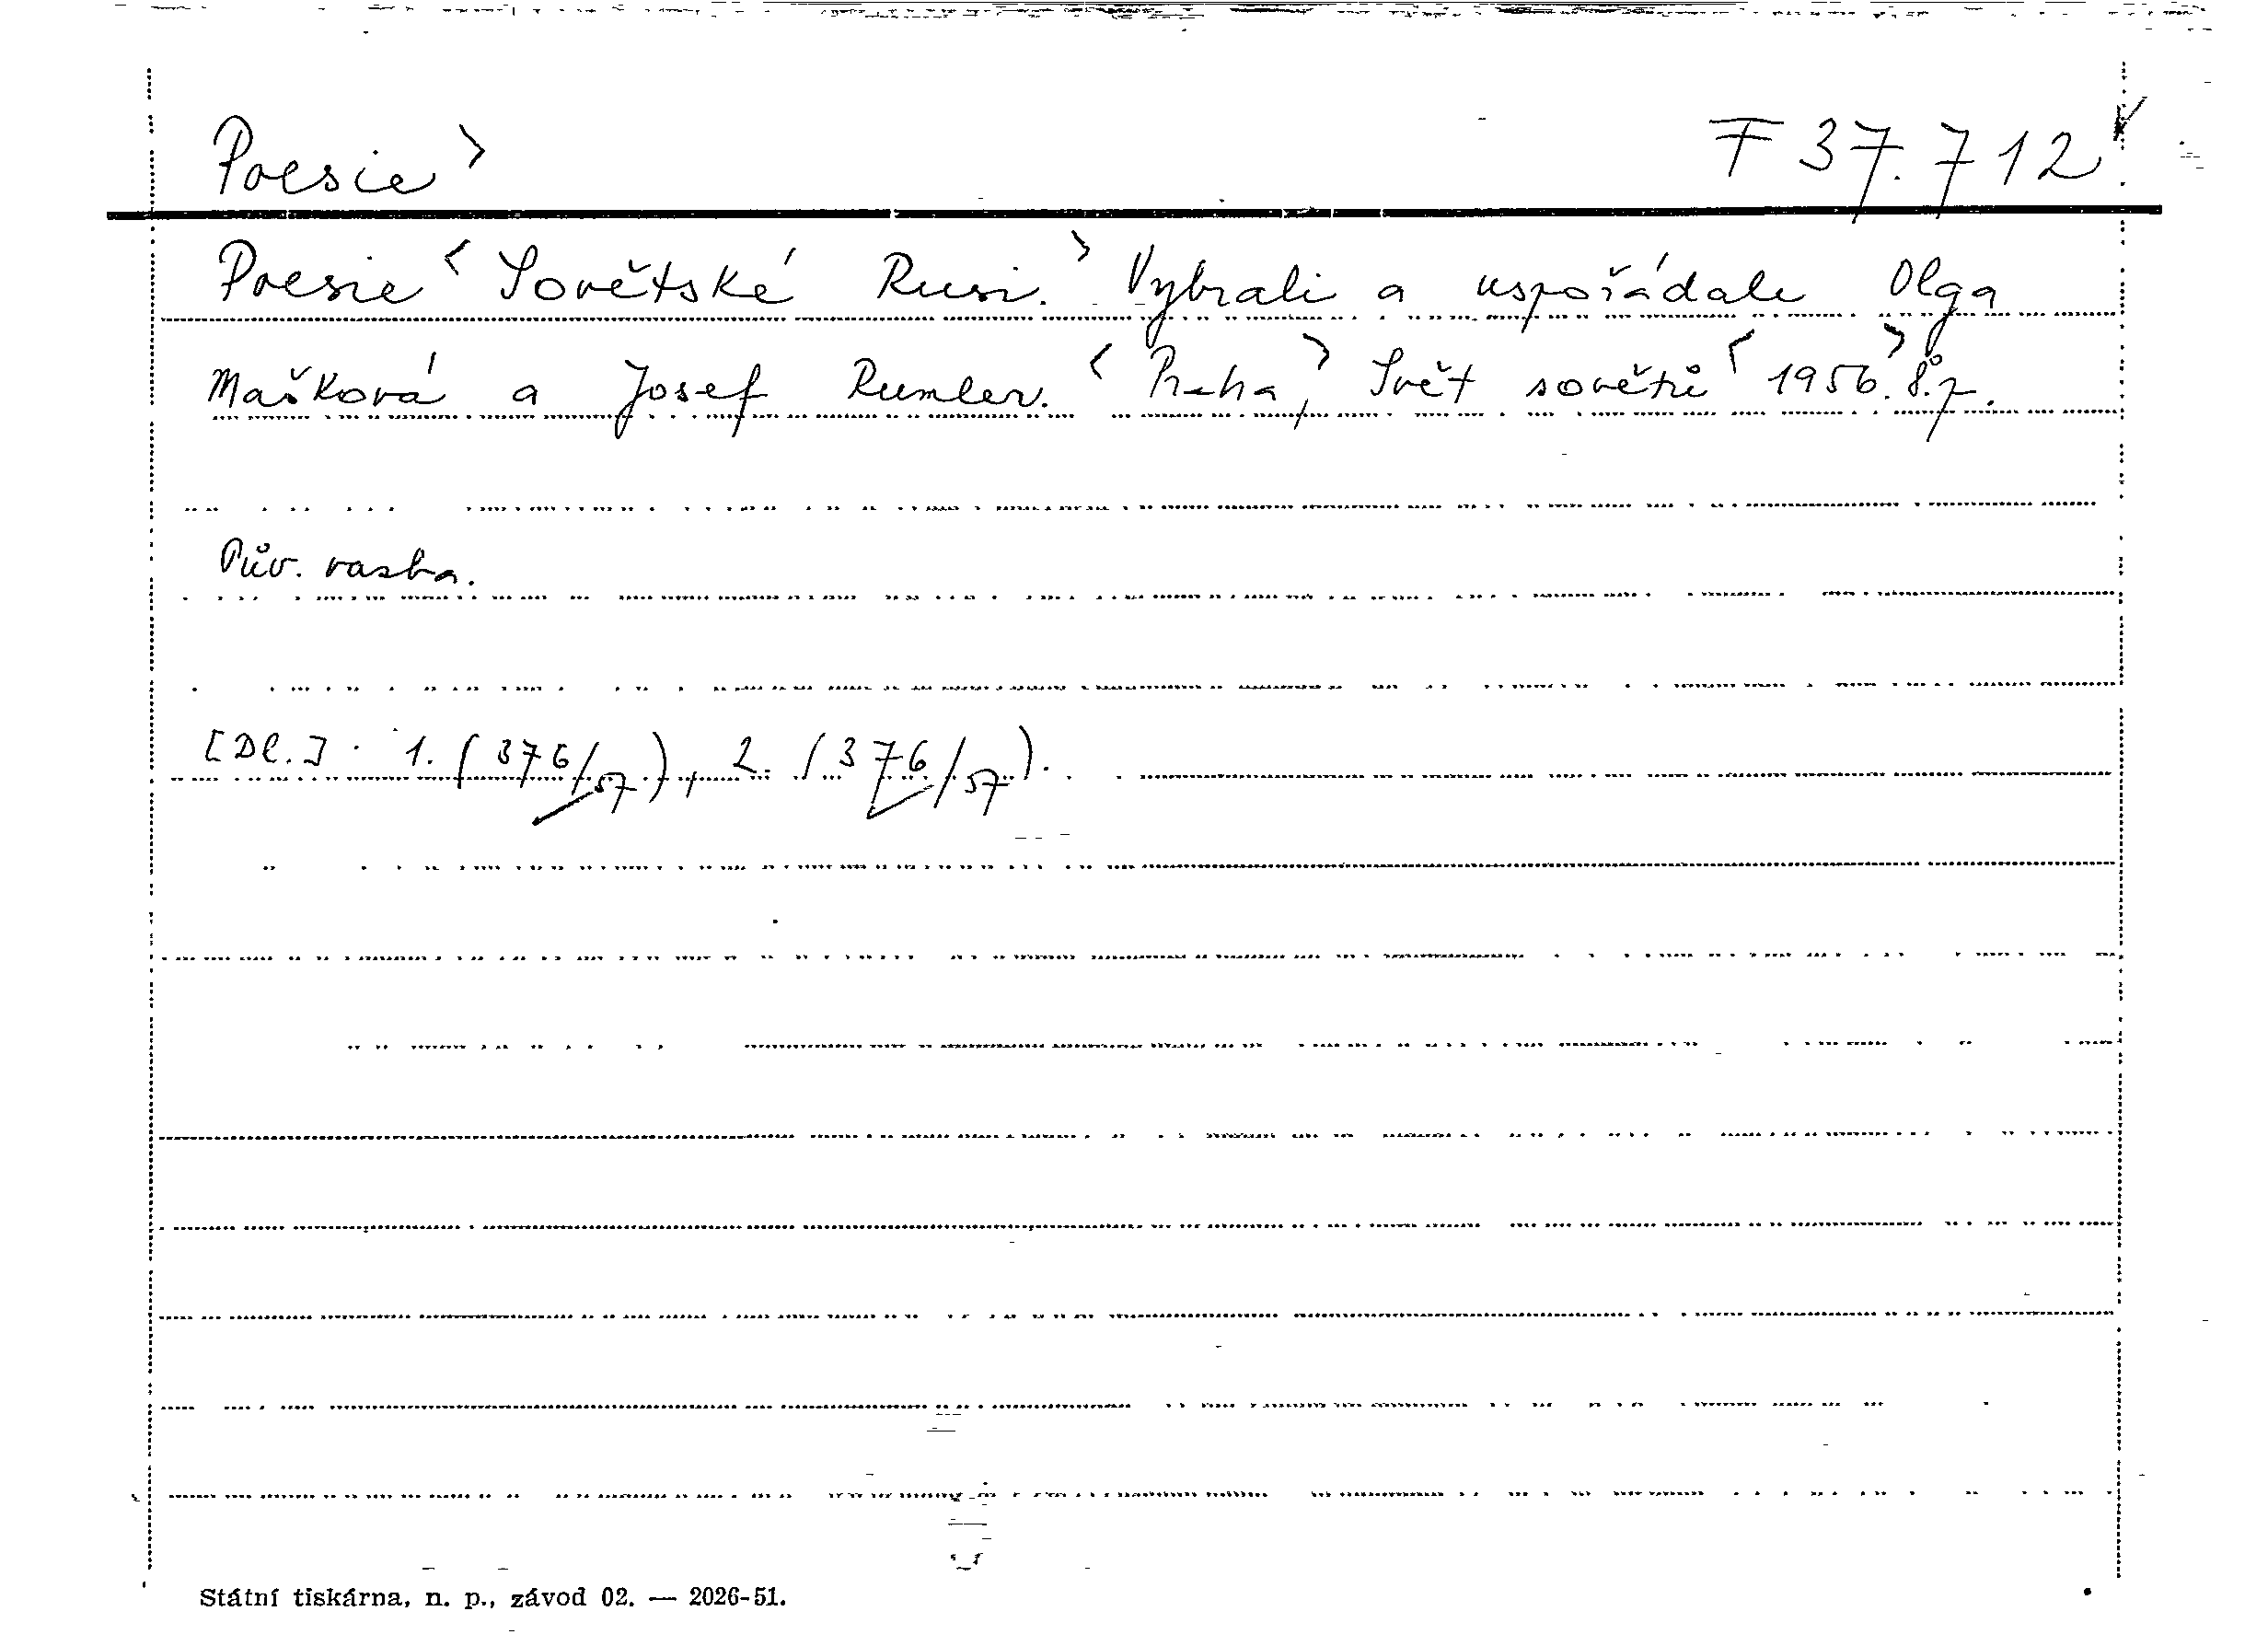 Poesie > F 37.712
Poesie < Sovětské Rusi. > Vybrali a uspořádali Olga
Mašková a Josef Rumler. < Praha, > Svět sovětů < 1956. > 8°.
Pův. vazba.
[Dl.] 1. (376/57), 2. (376/57).
Státní tiskárna, n. p., závod 02. — 2026-51.